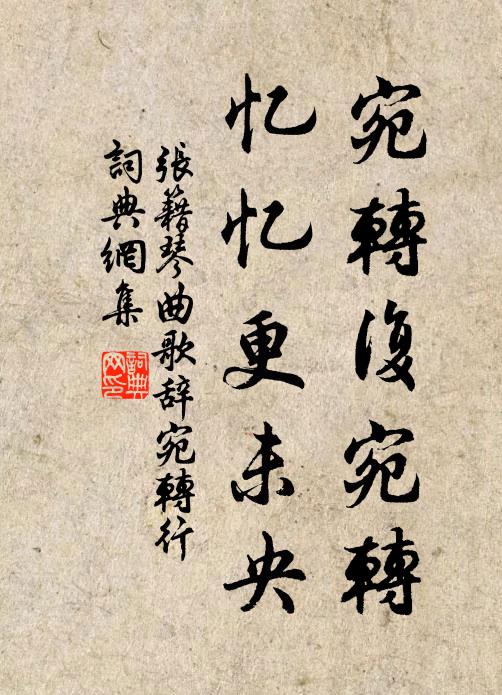 宛轉復宛轉
忆忆更未央
張籍琴曲歌辞宛轉行
詞典網集
詞典网印